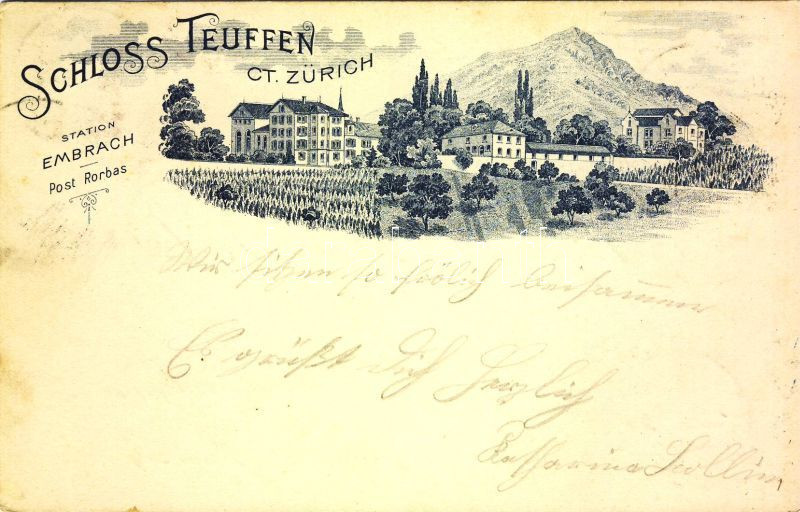 SCHLOSS TEUFFEN
CT. ZÜRICH
STATION
EMBRACH
Post Rorbas
Wir sitzen so frölich beisammen
Es grüßt Dich Herzlich
Katharina